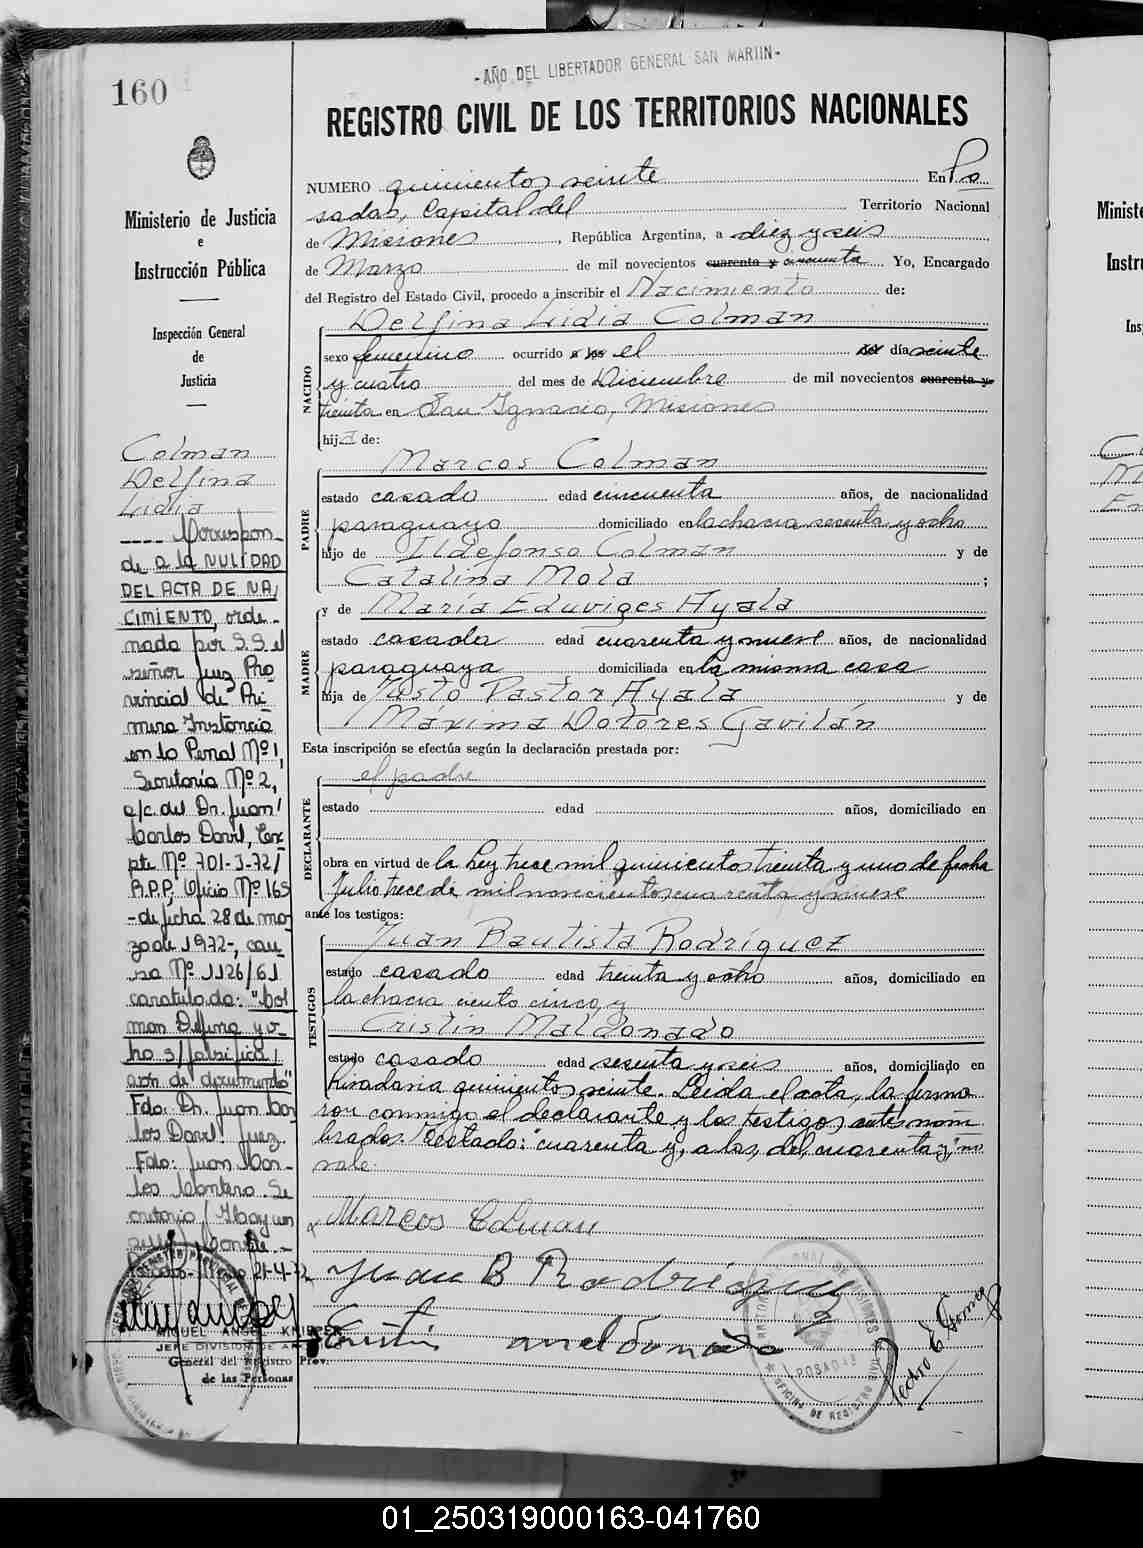 160
-AÑO DEL LIBERTADOR GENERAL SAN MARTIN-
REGISTRO CIVIL DE LOS TERRITORIOS NACIONALES
Ministerio de Justicia
e
Instrucción Pública
Inspección General
de
Justicia
Colman
Delfina
Lidia
---- Correspon-
de a la NULIDAD
DEL ACTA DE NA,
CIMIENTO, orde-
nada por S.S el
señor Juez Pro
vincial de Pri
mera Instancia
en lo Penal Nº 1,
Secretaría Nº 2,
a/c. del Dr. Juan
Carlos Davil, Ex
pte Nº 701-J-72/
R.P.P, Oficio Nº 165
- de fecha 28 de mar
zo de 1972-, cau
sa Nº 1126/61
caratulada: "Col
man Delfina y o-
tro s/ falsifica,
ción de documento"
Fdo. Dr. Juan Car
los Davil Juez.
Fdo: Juan Car-
los Montero. Se
cretario / Hay un
sello
21-4-72
MIGUEL ANGEL KNIPPER
JEFE DIVISION DE
General del Registro Prov.
de las Personas
NUMERO quinientos veinte En Po
sadas, Capital del Territorio Nacional
de Misiones, República Argentina, a diez y seis
de Marzo de mil novecientos cuarenta y cincuenta Yo, Encargado
del Registro del Estado Civil, procedo a inscribir el Nacimiento de:
NACIDO
Delfina Lidia Colman
sexo femenino ocurrido a las el del día veinte
y cuatro del mes de Diciembre de mil novecientos cuarenta y
treinta en San Ignacio, Misiones
hija de:
PADRE
Marcos Colman
estado casado edad cincuenta años, de nacionalidad
paraguaya domiciliado en la chacra sesenta y ocho
hijo de Ildefonso Colman y de
Catalina Mola ;
MADRE
y de María Eduviges Ayala
estado casada edad cuarenta y nueve años, de nacionalidad
paraguaya domiciliada en la misma casa
hija de Justo Pastor Ayala y de
Máxima Dolores Gavilán
Esta inscripción se efectúa según la declaración prestada por:
DECLARANTE
el padre
estado edad años, domiciliado en
obra en virtud de la Ley trece mil quinientos treinta y uno de fecha
Julio trece de mil novecientos cuarenta y nueve
ante los testigos:
TESTIGOS
Juan Bautista Rodríguez
estado casado edad treinta y ocho años, domiciliado en
la chacra ciento cinco y
Cristin Maldonado
estado casado edad sesenta y seis años, domiciliado en
Rivadavia quinientos veinte. Leida el acta, la firma
ron conmigo el declarante y los testigos antes nom
brados. Testado: "cuarenta y, a las, del, cuarenta y," no
vale.
Marcos Colman
Juan B Rodríguez
Pedro E. Gomez
POSADAS
OFICINA DE REGISTRO CIVIL
Ministe
Instru
Ins
01_250319000163-041760